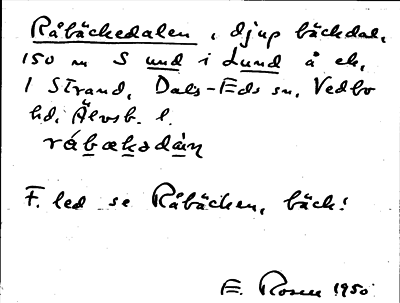 Råbäckedalen, djup bäckdal,
150 m S und i Lund å ek,
1 Strand, Dals-Eds sn, Vedbo
hd, Älvsb. l.
råbækədàn
F. led se Råbäcken, bäck!
E. Rosen 1950